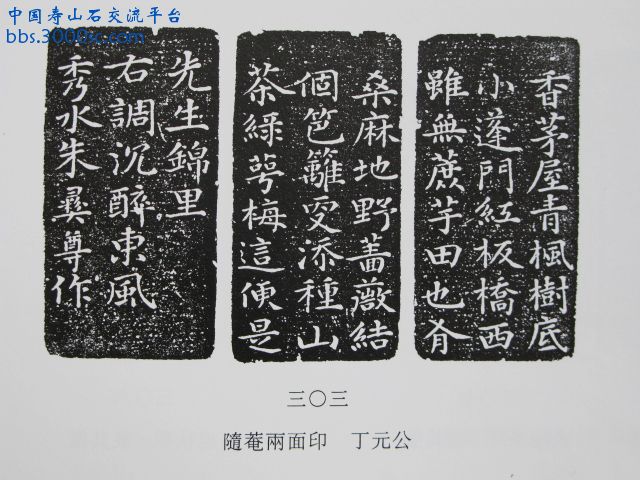 中国寿山石交流平台
bbs.3000sc.com
香茅屋青楓樹底
小蓬門紅板橋西
雖無蔗芋田也有
桑麻地野薔薇結
個笆籬更添種山
茶綠萼梅這便是
先生錦里
右調沉醉東風
秀水朱彝尊作
三〇三
隨菴兩面印　丁元公